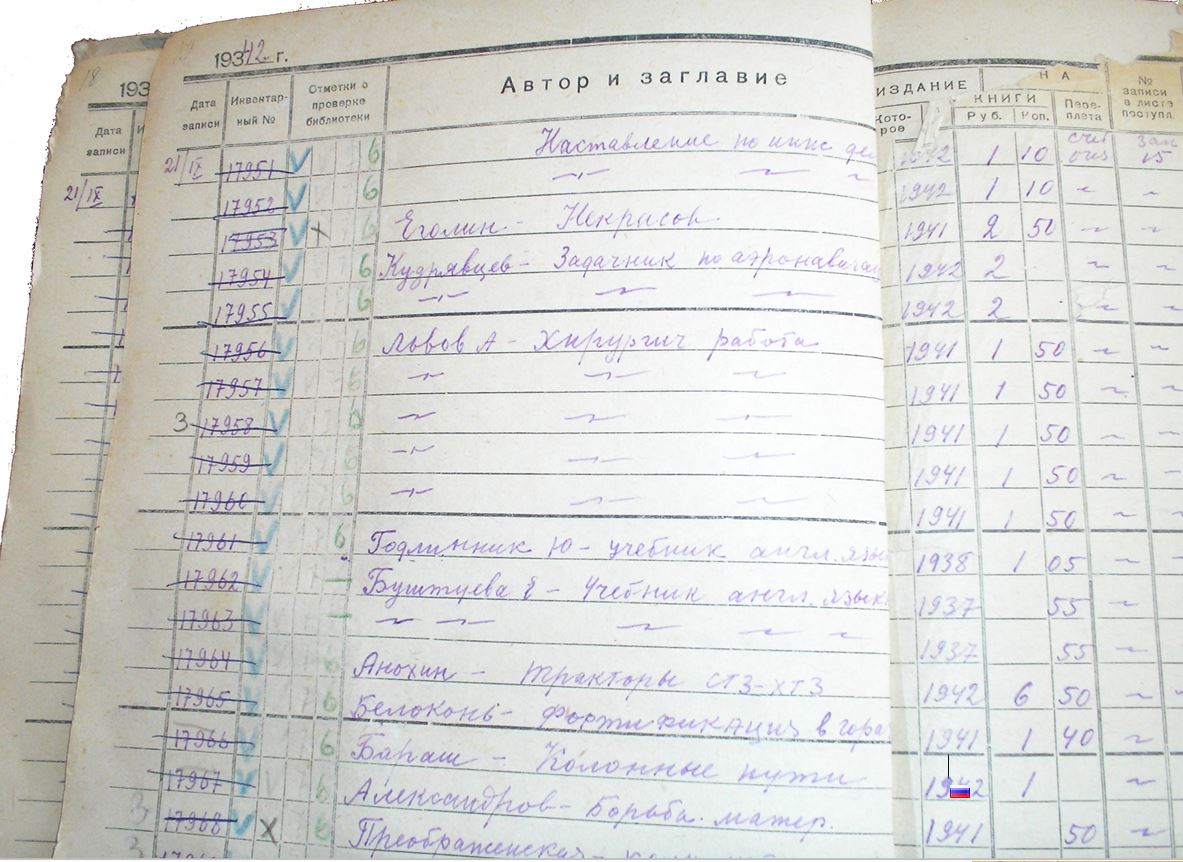 1942 г.
Дата записи | Инвентарный № | Отметки о проверке библиотеки | Автор и заглавие | ИЗДАНИЕ | КНИГИ | НА
Которое | Руб. | Коп. | Переплета | № записи в листе поступл.
21/IX 17951 6 Наставление по инж де 1942 1 10 15
17952 6 〃 1942 1 10 〃 〃
17953 6 Еголин - Некрасов 1941 2 50 〃 〃
17954 6 Кудрявцев - Задачник по аэронавигац 1942 2 〃 〃
17955 6 〃 〃 〃 1942 2 〃 〃
17956 6 Львов А - Хирургич работа 1941 1 50 〃 〃
17957 6 〃 〃 〃 1941 1 50 〃 〃
3 17958 6 〃 〃 〃 1941 1 50 〃 〃
17959 6 〃 〃 〃 1941 1 50 〃 〃
17960 6 〃 〃 〃 1941 1 50 〃 〃
17961 6 Годлинник Ю - учебник англ. язы 1938 1 05 〃
17962 — Буштуева Е - Учебник англ. язык 1937 55 〃
17963 — 〃 〃 〃 〃 〃 1937 55 〃
17964 6 Анохин - Тракторы СТЗ-ХТЗ 1942 6 50 〃
17965 6 Белоконь - Фортификация в гора 1941 1 40 〃
17966 6 Бараш - Колонные пути 1942 1 〃
17967 6 Александров - Борьба. матер. 1941 50 〃
3 17968 Преображенская -
18
193
Дата записи
21/IX